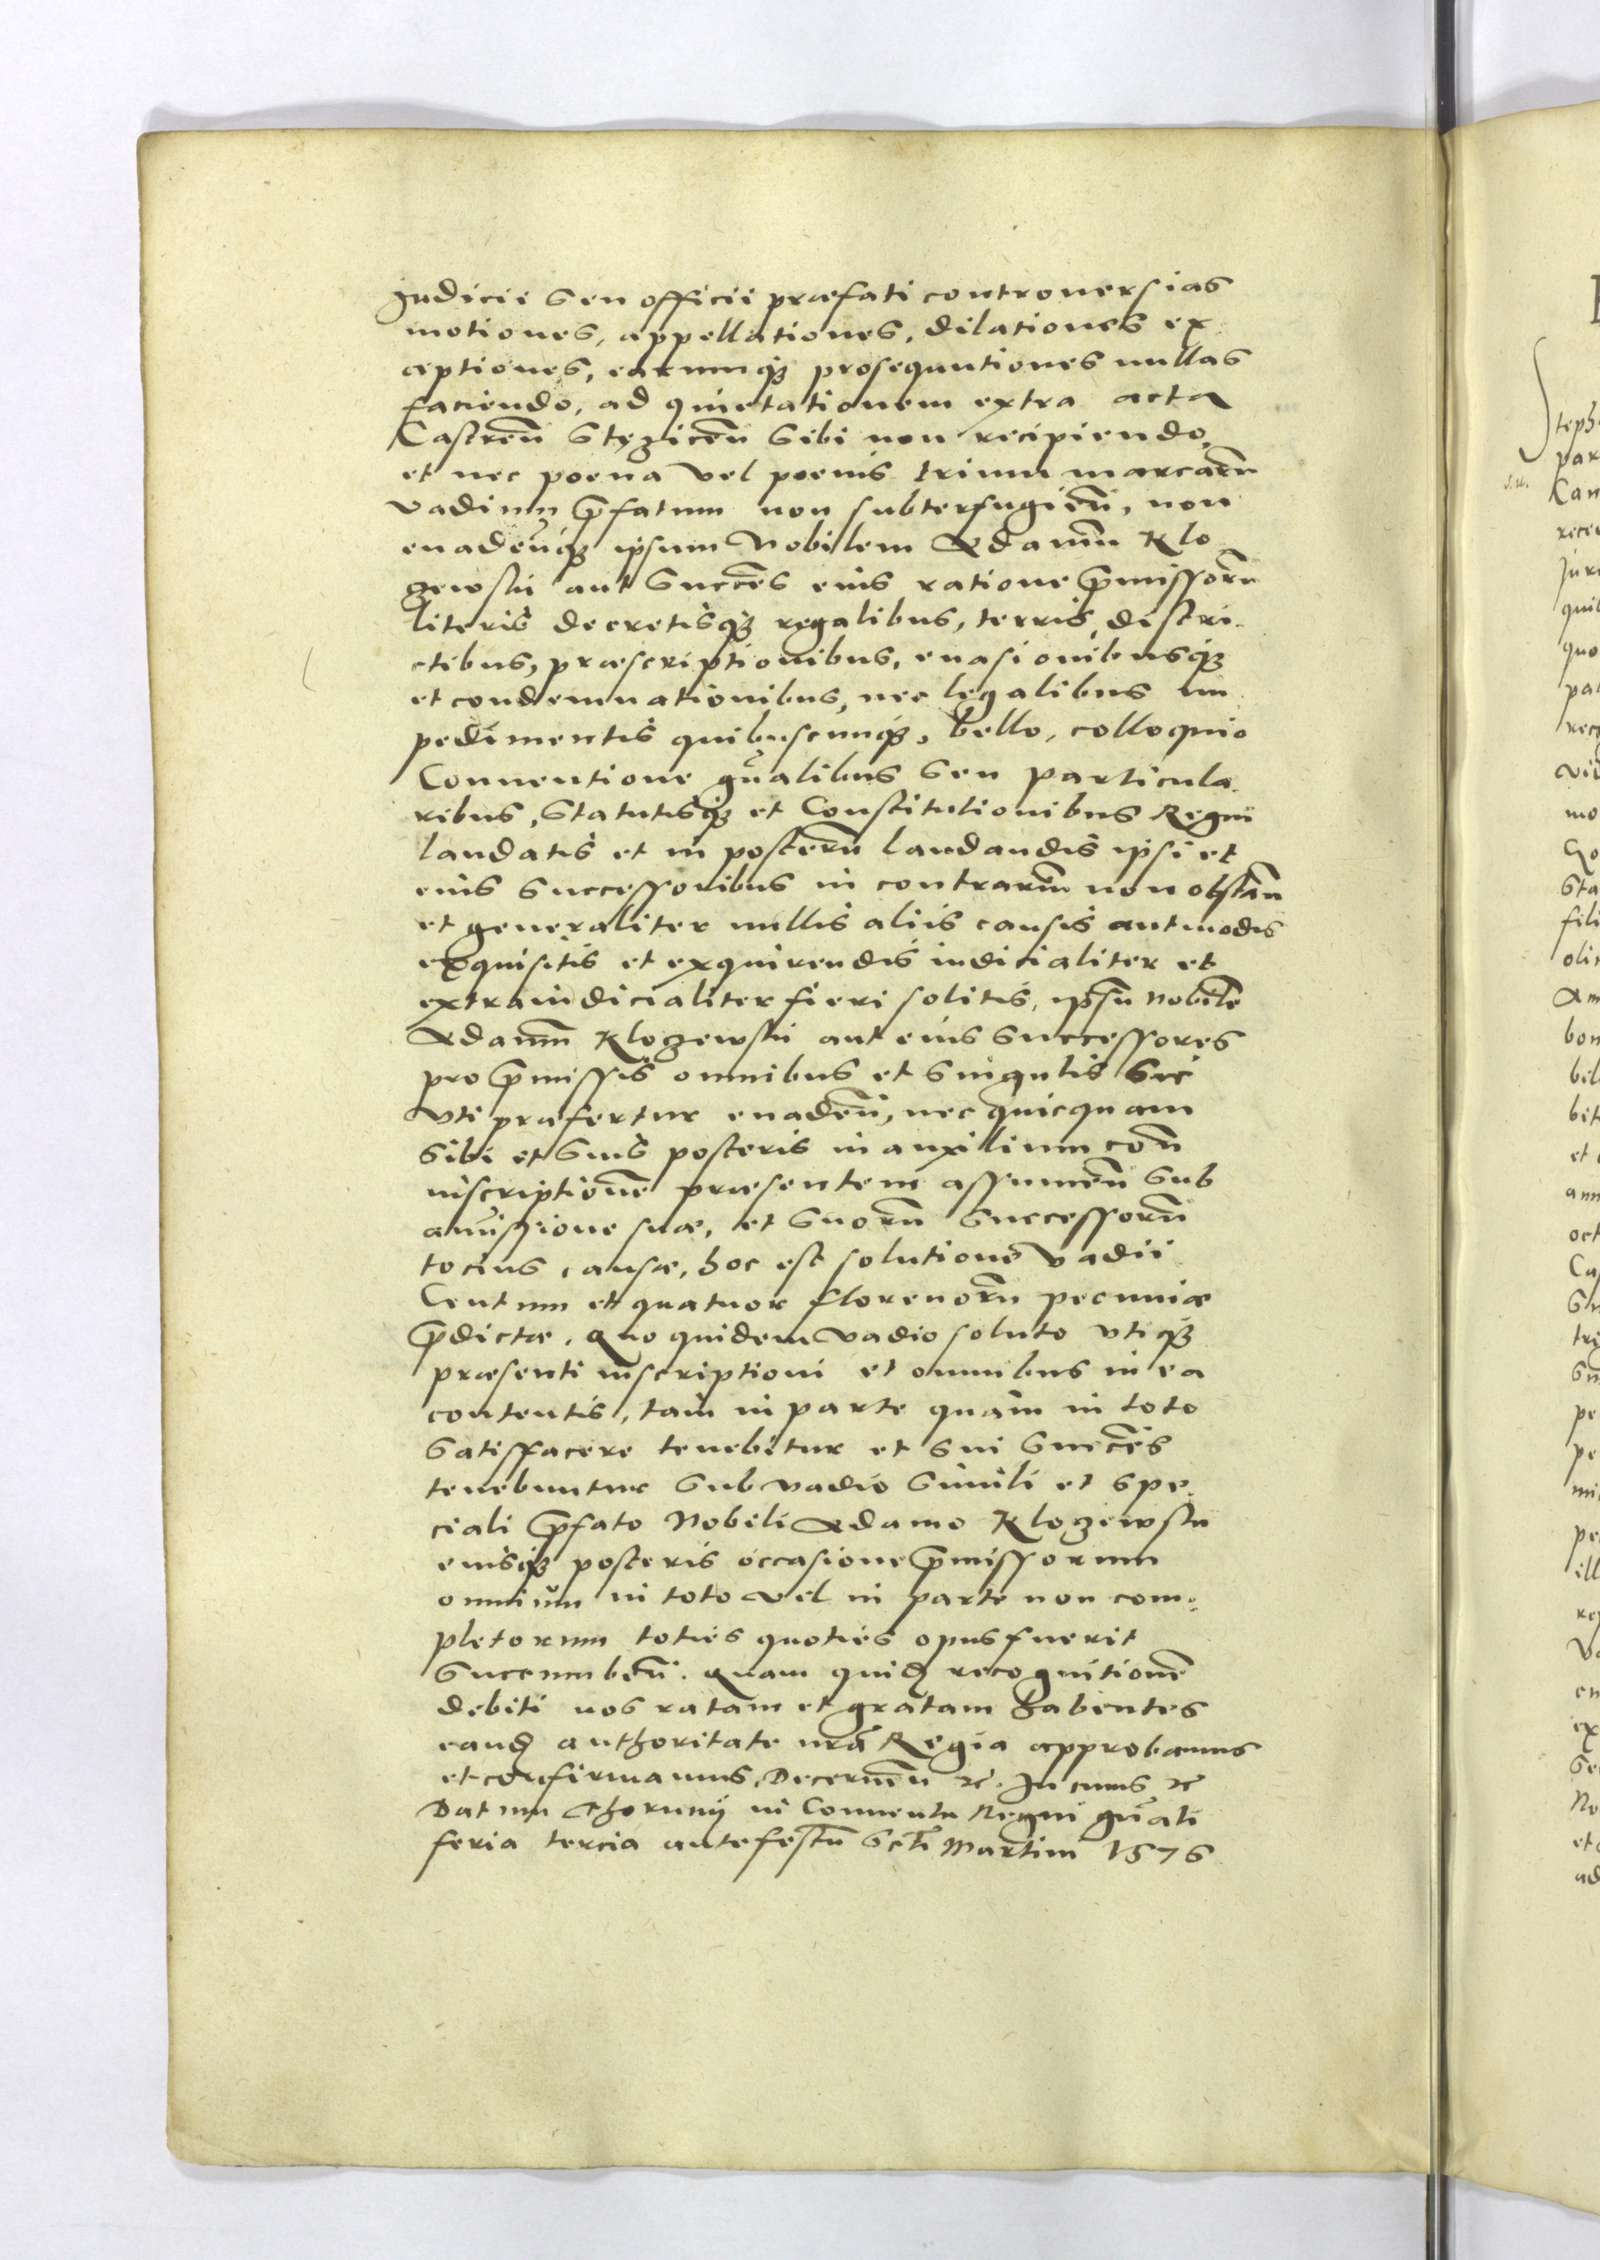 Iudicii seu officii præfati controuersias
motiones, appellationes, dilationes ex
ceptiones, earumq₃ prosequutiones nullas
faciendo, ad quietationem extra acta
Castreñ Stęzicen̄ sibi non recipiendo,
et nec poena vel poenis trium marcarū
vadium p̄fatum non subterfugien̄, non
euadeñq₃ ipsum Nobilem Adamum Klo
zewski aut Succēs eius ratione p̄missorū
literis decretisq₃ regalibus, terris, districtibus, 
ctibus, præscriptionibus, euasionibusq₃
et condemnationibus, nec legalibus im
pedimentis quibuscunq₃, bello, colloquio
Conuentione gn̄alibus seu particula
ribus, Statutisq₃ et Constitutionibus Regni
laudatis et in posterū laudandis ipsi et
eius successoribus in contrariū non obstan̄
et generaliter nullis aliis causis aut modis
exquisitis et exquirendis iudicialiter et
extraiudicialiter fieri solitis, ipsū Nobilē
Adamū Klozewski aut eius successores
pro p̄missis omnibus et singulis sic
vti præfertur euaden̄, nec quicquam
sibi et suis posteris in auxilium con̄
inscriptionē præsentem assumen̄ sub
amissione suæ, et suorū successorū
tocius causæ, hoc est solutione vadii
Centum et quatuor florenorū pecuniæ
p̄dictæ. Quo quidem vadio soluto vtiq₃
præsenti inscriptioni et omnibus in ea
contentis, tam in parte quàm in toto
satisfacere tenebitur et sui succēs
tenebuntur sub vadio simili et spe
ciali p̄fato Nobili Adamo Klozewski
eiusq₃ posteris occasione p̄missorum
omnium in toto vel in parte non com⸗
pletorum toties quoties opus fuerit
succumben̄. Quam quid̄ recognitionē
debiti nos ratam et gratam habentes
eand̄ authoritate nr̄a Regia approbamus
et confirmamus, Decernen̄ &c. In cuius &c
Datum Thorunij in Conuentu Regni gn̄ali
feria tercia ante festū Scti Martini 1576